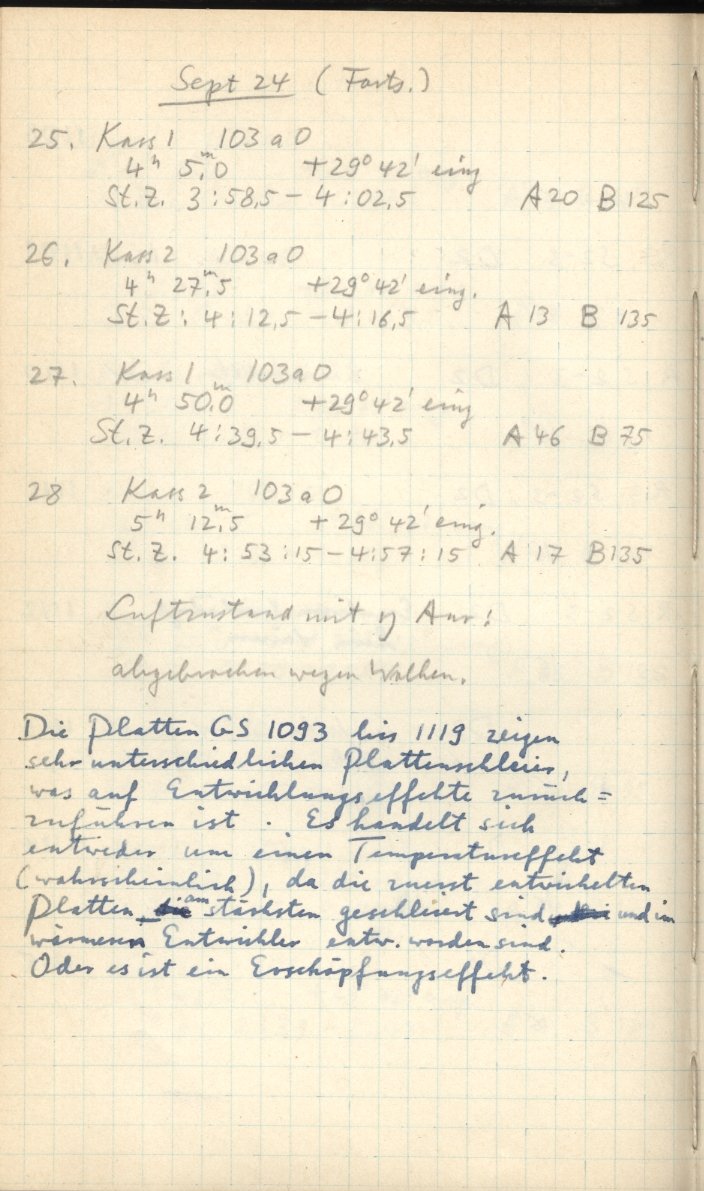 Sept 24 (Forts.)
25. Kass 1 103a0
4h 5m,0 +29° 42' eing
St.Z. 3:58,5 – 4:02,5 A 20 B 125
26. Kass 2 103a0
4h 27m,5 +29° 42' eing.
St.Z: 4:12,5 – 4:16,5 A 13 B 135
27. Kass 1 103a0
4h 50m,0 +29° 42' eing
St.Z. 4:39,5 – 4:43,5 A 46 B 75
28 Kass 2 103a0
5h 12m,5 +29° 42' eing.
St.Z. 4:53:15 – 4:57:15 A 17 B 135
Luftzustand mit η Aur!
abgebrochen wegen Wolken.
Die Platten GS 1093 bis 1119 zeigen
sehr unterschiedlichen Plattenschleier,
was auf Entwicklungseffekte zurück=
zuführen ist. Es handelt sich
entweder um einen Temperatureffekt
(wahrscheinlich), da die zuerst entwickelten
Platten am stärksten geschleiert sind und im
wärmeren Entwickler entw. worden sind.
Oder es ist ein Erschöpfungseffekt.